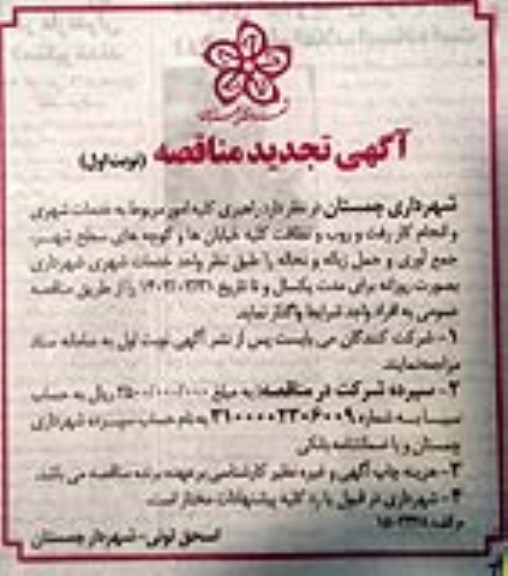 آگهی تجدید مناقصه (نوبت اول)
شهرداری چمستان در نظر دارد راهبری کلیه امور مربوط به خدمات شهری
و انجام کار رفت و روب و نظافت کلیه خیابان ها و کوچه های سطح شهر،
جمع آوری و حمل زباله و نخاله را طبق نظر واحد خدمات شهری شهرداری
بصورت روزانه برای مدت یکسال و تا تاریخ را از طریق مناقصه
عمومی به افراد واجد شرایط واگذار نماید.
۱- شرکت کنندگان می بایست پس از نشر آگهی نوبت اول به سامانه ستاد
مراجعه نمایند.
۲- سپرده شرکت در مناقصه: به مبلغ ریال به حساب
سیبا به شماره ۳۱۰۰۰۰۲۳۰۶۰۰۹ به نام حساب سپرده شهرداری
چمستان و یا ضمانتنامه بانکی
۳- هزینه چاپ آگهی و غیره نظیر کارشناسی بر عهده برنده مناقصه می باشد.
۴- شهرداری در قبول یا رد کلیه پیشنهادات مختار است.
م الف:
اسحق نونی - شهردار چمستان